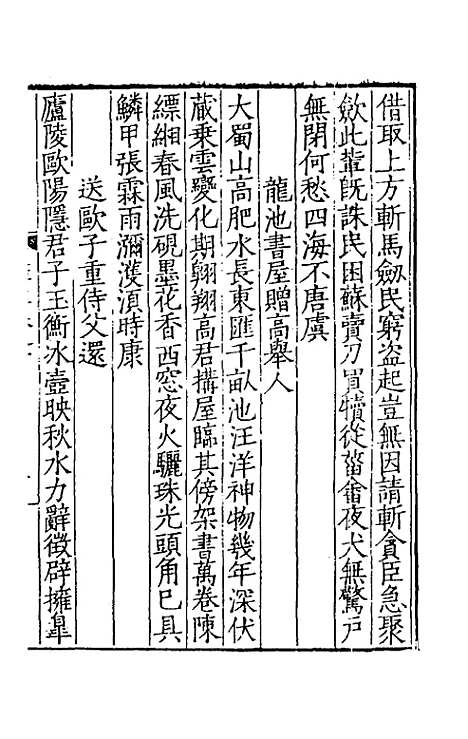 借取上方斬馬劔民窮盗起豈無因請斬貪臣急聚
歛此輩旣誅民困蘇賣刀買犢從菑畬夜犬無驚戸
無閉何愁四海不唐虞
龍池書屋贈高舉人
大蜀山高肥水長東匯千畝池汪洋神物幾年深伏
蔵乗雲變化期翺翔高君搆屋臨其傍架書萬卷陳
縹緗春風洗硯墨花香西窓夜火驪珠光頭角已具
鱗甲張霖雨瀰濩湏時康
送歐子重侍父還
廬陵歐陽隱君子玉衡冰壺映秋水力辭徴辟擁臯